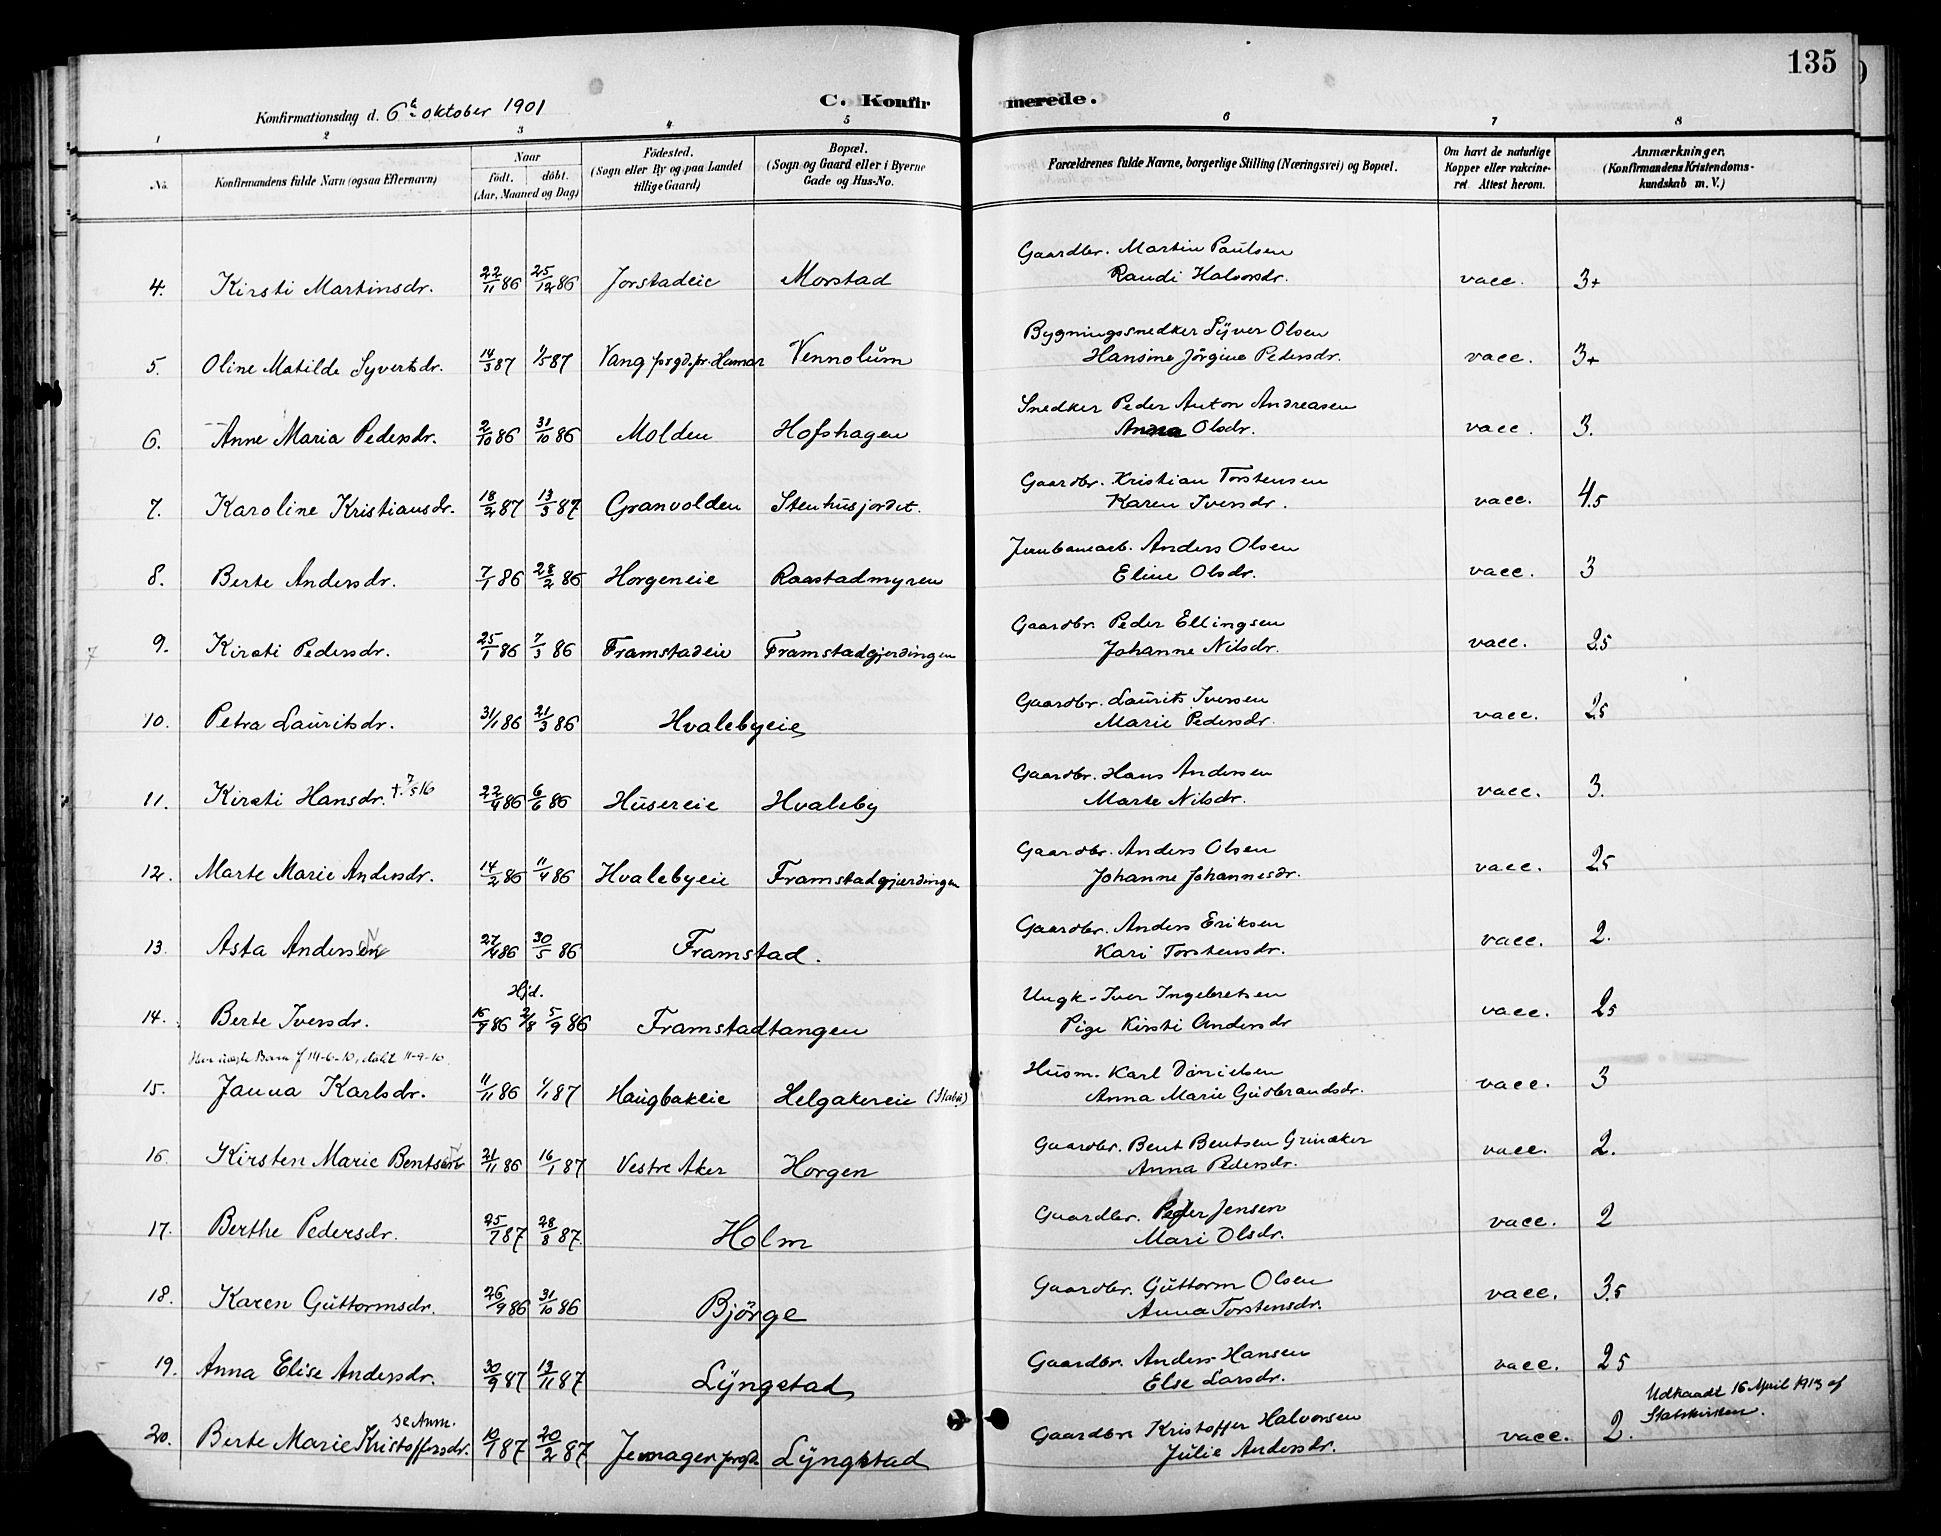 135
Konfirmationsdag d. 6te oktober 1901
C. Konfirmerede.
1 2 3 4 5 6 7 8
No.
Konfirmandens fulde Navn (ogsaa Efternavn)
Naar
født. døbt.
(Aar, Maaned og Dag)
Fødested.
(Sogn eller By og paa Landet
tillige Gaard)
Bopæl.
(Sogn og Gaard eller i Byerne
Gade og Hus-No.
Forældrenes fulde Navne, borgerlige Stilling (Næringsvei) og Bopæl.
Om havt de naturlige
Kopper eller vakcine-
ret. Attest herom.
Anmærkninger.
(Konfirmandens Kristendoms-
kundskab m. V.)
Gaardbr. Martin Paulsen
4. Kirsti Martinsdr. 22/11 86 25/12 86 Jorstadeie Morstad Randi Halvorsdr. vacc. 3+
Bygningssnedker Syver Olsen
5. Oline Matilde Syvertsdr. 14/3 87 1/5 87 Vang prgd. pr. Hamar Vennolum Hansine Jørgine Pedersdr. vacc. 3+
Snedker Peder Anton Andreasen
6. Anne Maria Pedersdr. 2/10 86 31/10 86 Molden Hofshagen Anna Olsdr. vacc. 3.
Gaardbr. Kristian Torstensen
7. Karoline Kristiansdr. 18/2 87 13/3 87 Granvolden Stenhusjordet. Karen Iversdr. vacc. 4.5
Jernbanearb. Anders Olsen
8. Berte Andersdr. 7/1 86 28/2 86 Horgeneie Raastadmyren Eline Olsdr. vacc. 3
Gaardbr. Peder Ellingsen
9. Kirsti Pedersdr. 25/1 86 7/3 86 Framstadeie Framstadgjerdingen Johanne Nilsdr. vacc. 2.5
Gaardbr. Laurits Iversen
10. Petra Lauritsdr. 31/1 86 21/3 86 Hvalebyeie Marie Pedersdr. vacc. 2.5
Gaardbr. Hans Andersen
11. Kirsti Hansdr. +. 7/5 16 22/4 86 6/6 86 Husereie Hvaleby Marte Nilsdr. vacc. 3.
Gaardbr. Anders Olsen
12. Marte Marie Andersdr. 14/2 86 11/4 86 Hvalebyeie Framstadgjerdingen Johanne Johannesdr. vacc. 2.5
Gaardbr. Anders Eriksen
13. Asta Andersen 27/4 86 30/5 86 Framstad. Kari Torstensdr. vacc. 2.
Hjd. Ungk. Iver Ingebretsen
14. Berte Iversdr. 86 2/8 5/9 86 Framstadtangen Pige Kirsti Andersdr vacc. 2.5
Barn f 14-6-10, døbt 11-9-10
Husm. Karl Danielsen
15. Janna Karlsdr. 11/11 86 1/1 87 Haugbakeie Helgakereie Anna Marie Gudbrandsdr. vacc. 3
Gaardbr. Bent Bentsen Grinaker
16. Kirsten Marie Bentsdr 21/11 86 16/1 87 Vestre Aker Horgen Anna Pedersdr. vacc. 2.
Gaardbr. Peder Jensen
17. Berthe Pedersdr. 25/7 87 28/8 87. Holm Mari Olsdr. vacc. 2
Gaardbr. Guttorm Olsen
18. Karen Guttormsdr. 26/9 86 31/10 86 Bjørge Anna Torstensdr. vacc. 3.5
Gaardbr. Anders Hansen
19. Anna Elise Andersdr. 30/9 87 13/11 87 Lyngstad Else Larsdr. vacc. 2.5
Udtraadt 16 April 1913 af
Statskirken.
se Anm. Gaardbr. Kristoffer Halvorsen
20. Berte Marie Kristoffersdr. 10/1 87 20/2 87 Jevnager prgd. Lyngstad Julie Andersdr. vacc. 2.